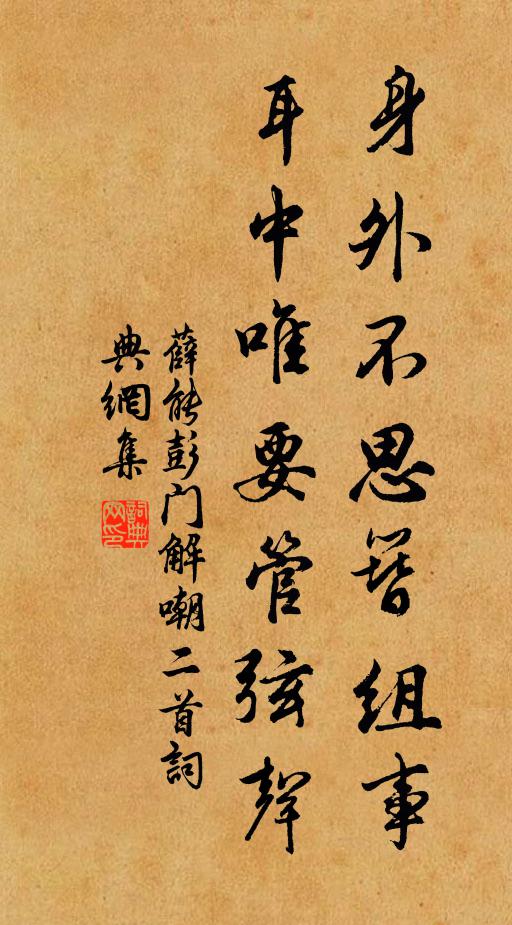 身外不思簪組事
耳中唯要管弦聲
薛能彭门解嘲二首詞
典網集
詞典网印